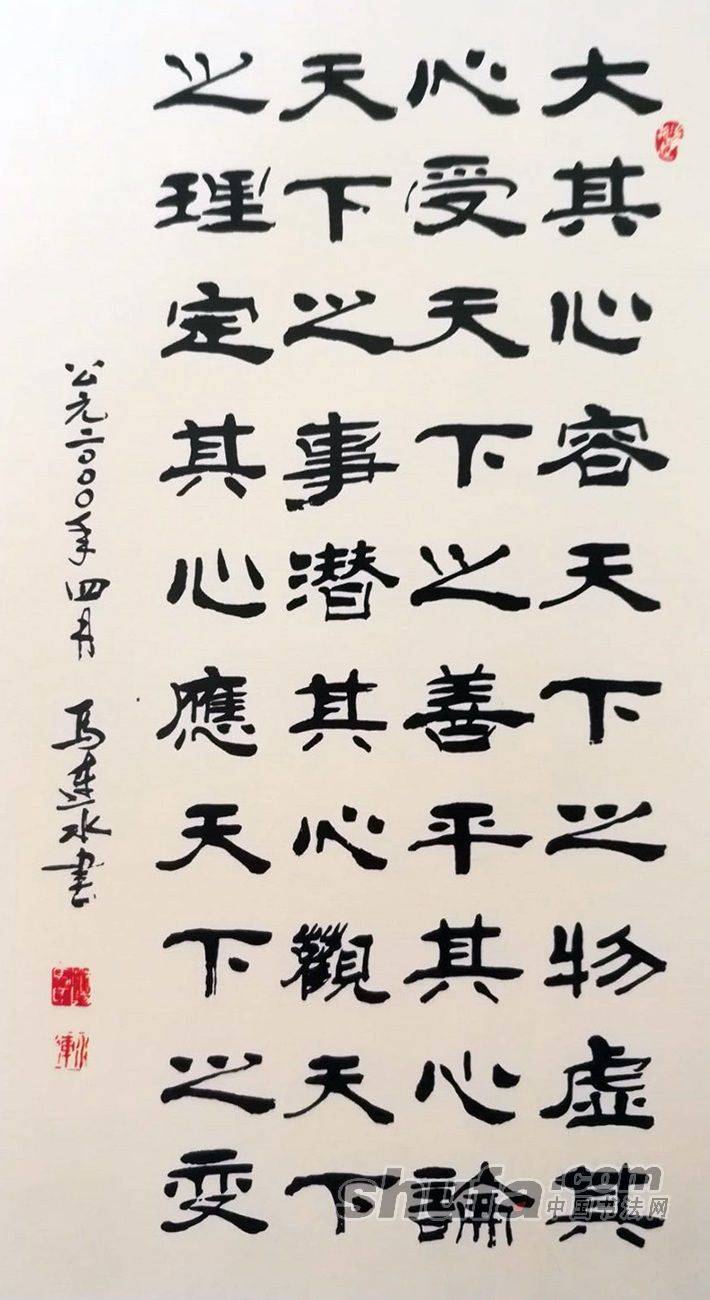 大其心容天下之物虚其
心受天下之善平其心論
天下之事潜其心觀天下
之理定其心應天下之变
公元二〇〇〇年四月 马连水书
shufa.com
中国书法网